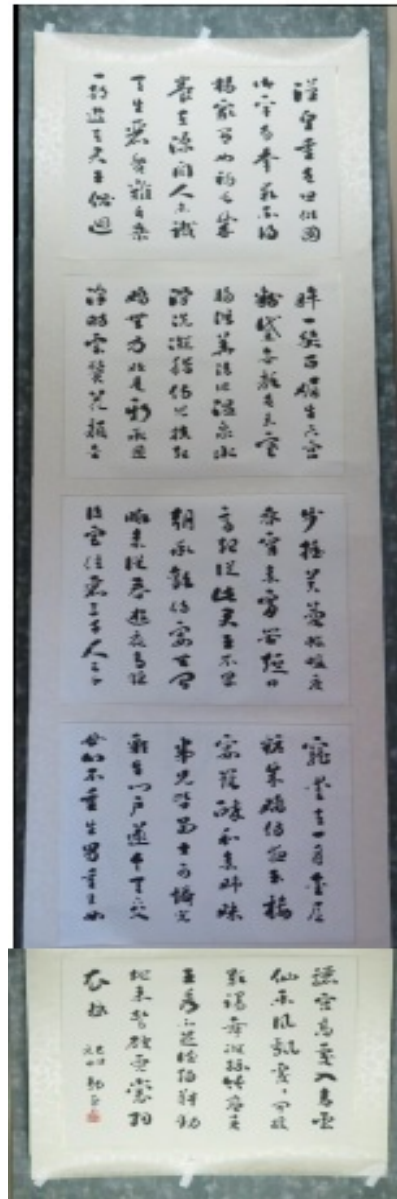 漢皇重色思傾國
御宇多年求不得
楊家有女初長成
養在深閨人未識
天生麗質難自棄
一朝選在君王側回
眸一笑百媚生六宮
粉黛無顏色春寒
賜浴華清池溫泉水
滑洗凝脂侍兒扶起
嬌無力始是新承恩
澤時雲鬢花顏金
步搖芙蓉帳暖度
春宵春宵苦短日
高起從此君王不早
朝承歡侍宴無閒
暇春從春遊夜專
後宮佳麗三千人三千
寵愛在一身金屋
妝成嬌侍夜玉樓
宴罷醉和春姊妹
弟兄皆列土可憐光
彩生門戶遂令天下父
母心不重生男重生女
驪宮高處入青雲
仙樂風飄處々聞緩
歌謾舞凝絲竹盡日君
王看不足漁陽鼙鼓動
地來驚破霓裳羽
衣曲